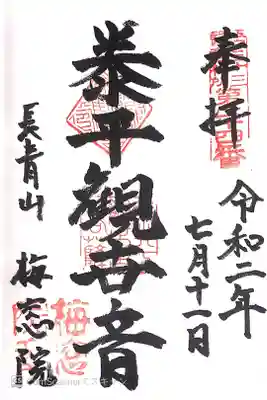 奉拝
令和二年
七月十一日
泰平観世音
長青山
梅窓院